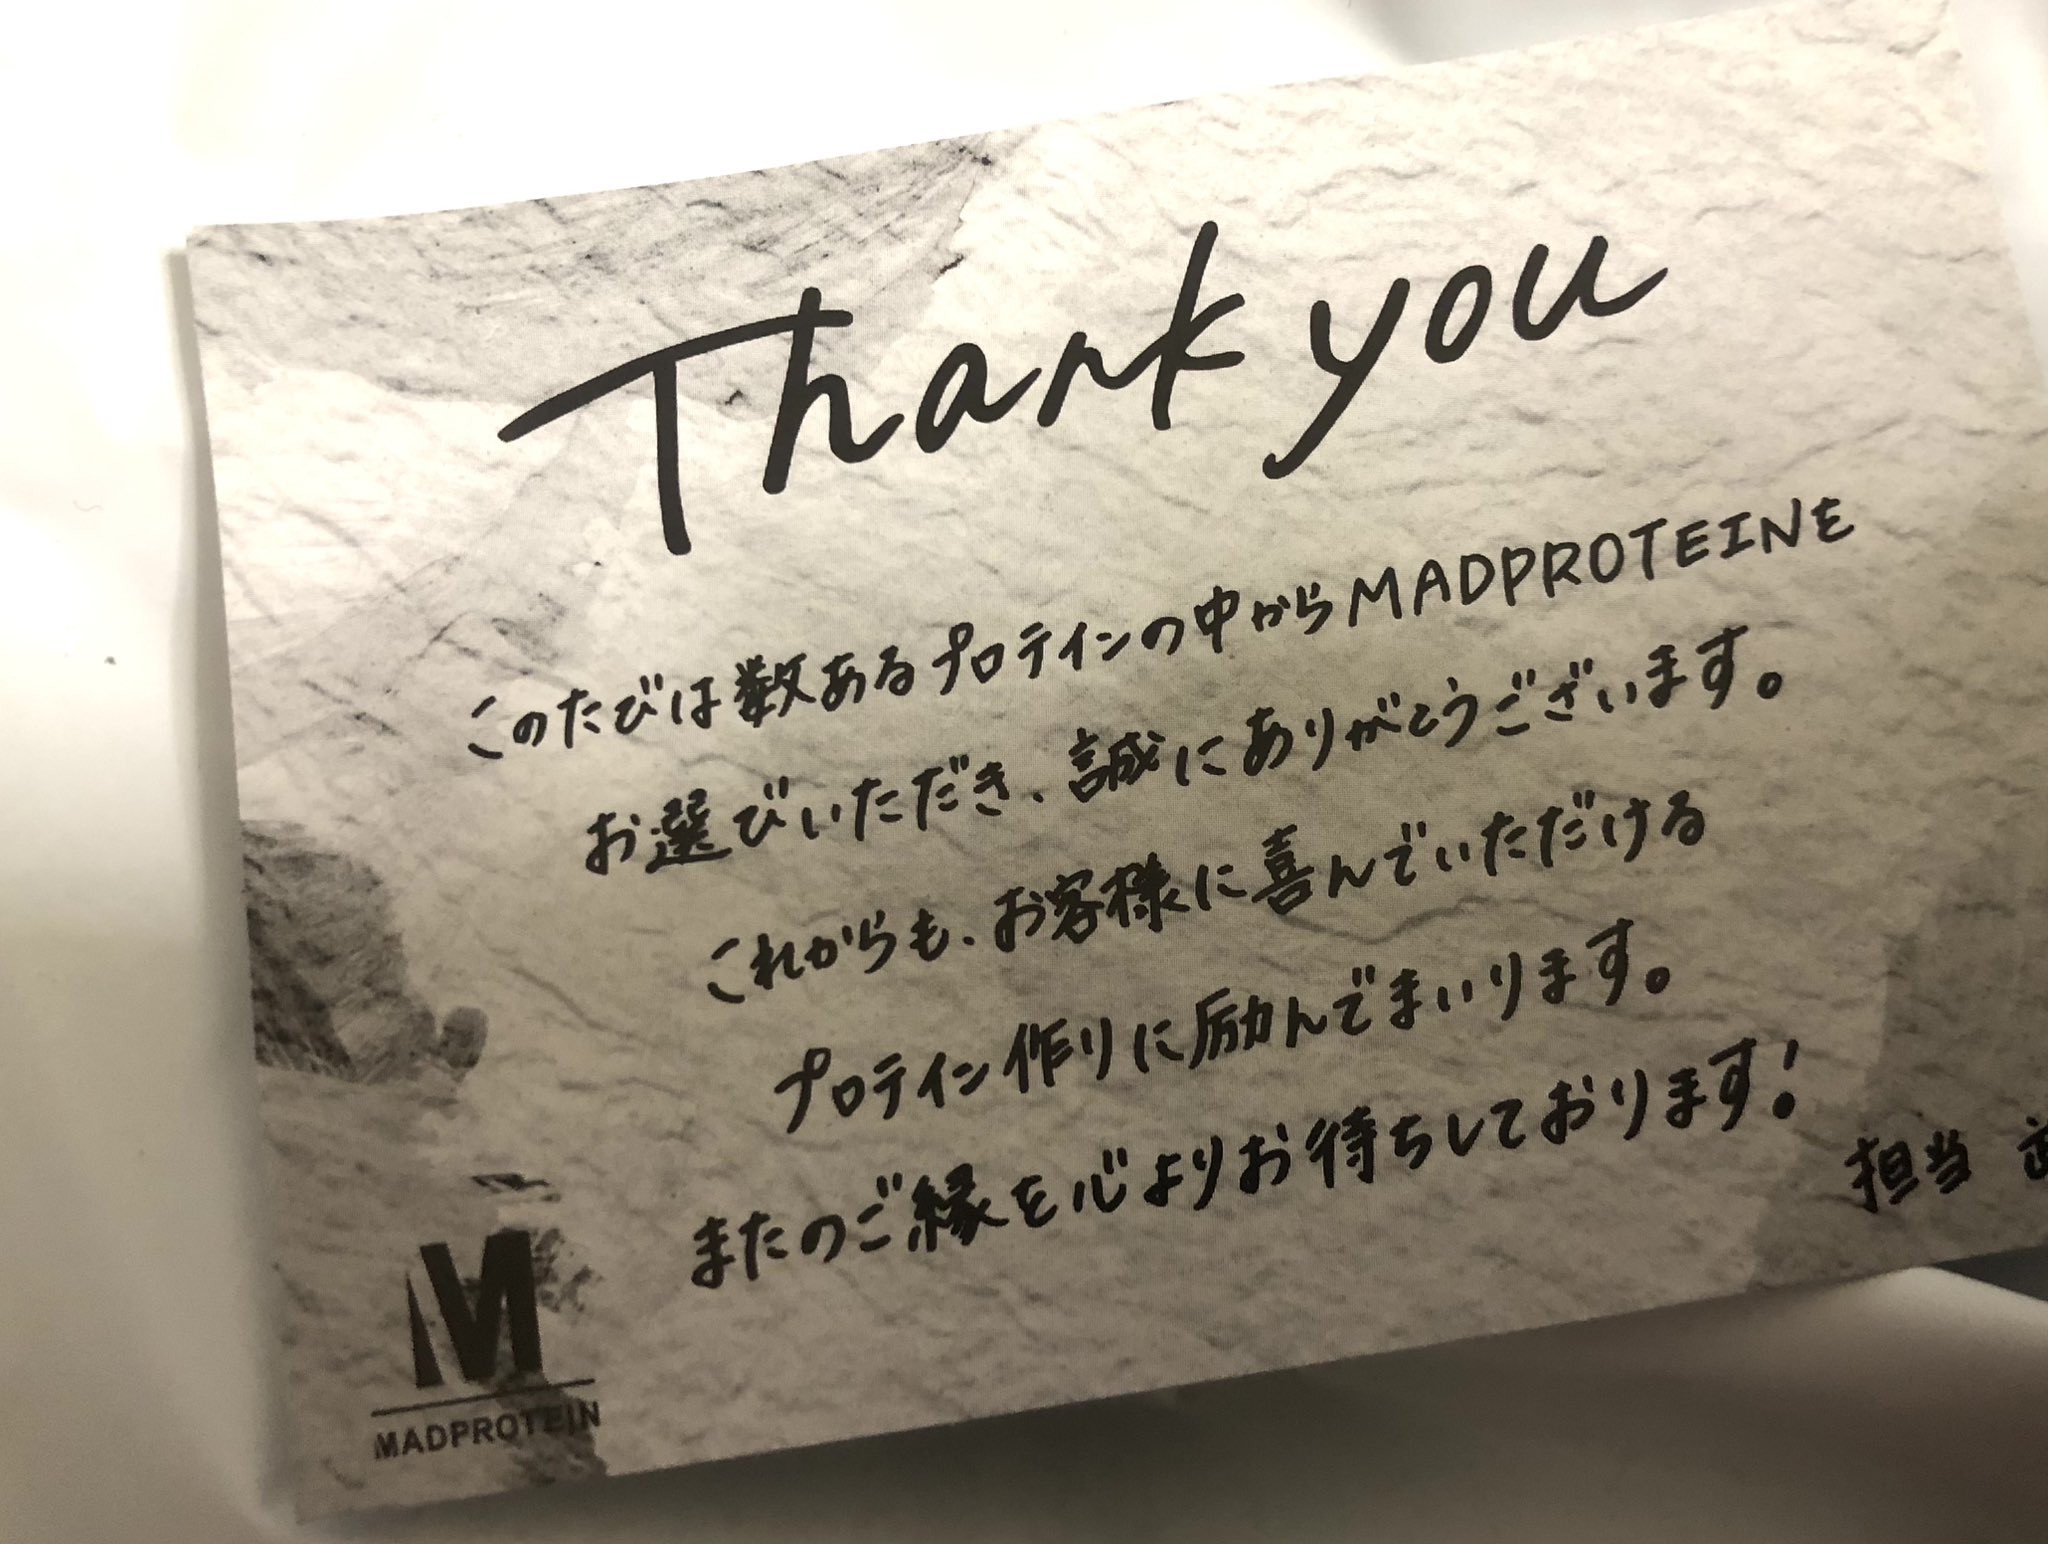 Thank you
このたびは数あるプロテインの中からMADPROTEINE
お選びいただき、誠にありがとうございます。
これからも、お客様に喜んでいただける
プロテイン作りに励んでまいります。
またのご縁を心よりお待ちしております!
担当
M
MADPROTEIN